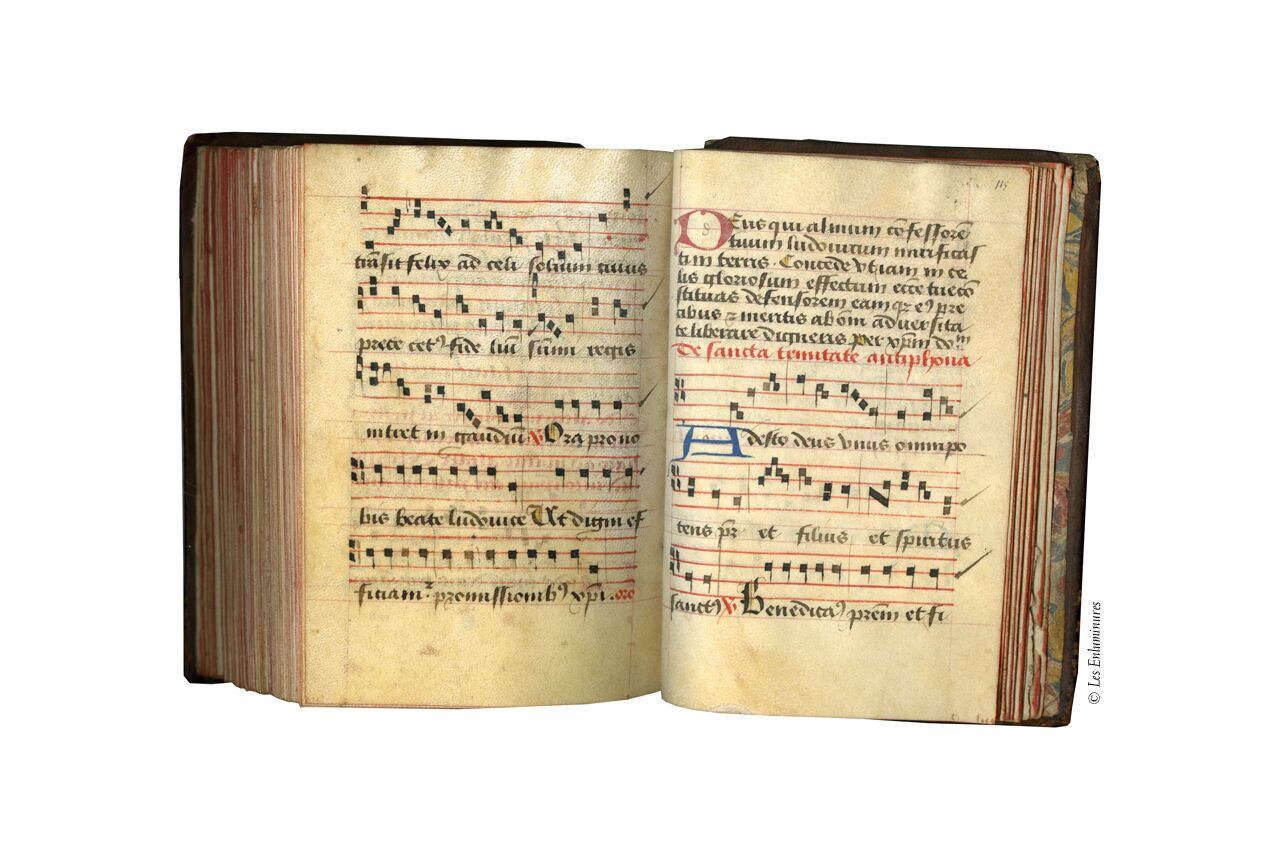 transit felix ad celi solium cuius
prece cet⁹ fide liū sūmi regis
intret in gaudiū ꝟ Ora pro no
bis beate ludovice Ut digni ef
ficiam² promissionib⁹ xp̄i . oro
115
DEus qui almum cōfessorē
tuum ludovicum mirificas
ti in terris . Concede ut iam in ce
lis gloriosum effectum ecc̄e tue cō
stituas defensorem eam qꝫ ei⁹ pre
cibus ⁊ meritis ab om̄i adversita
te liberare digneris per xp̄m dom̄
De sancta trinitate antiphona
Adesto deus unus omnipo
tens pr̄ et filius et spiritus
sanct⁹ ꝟ Benedica⁹ prēm et fi
© Les Enluminures